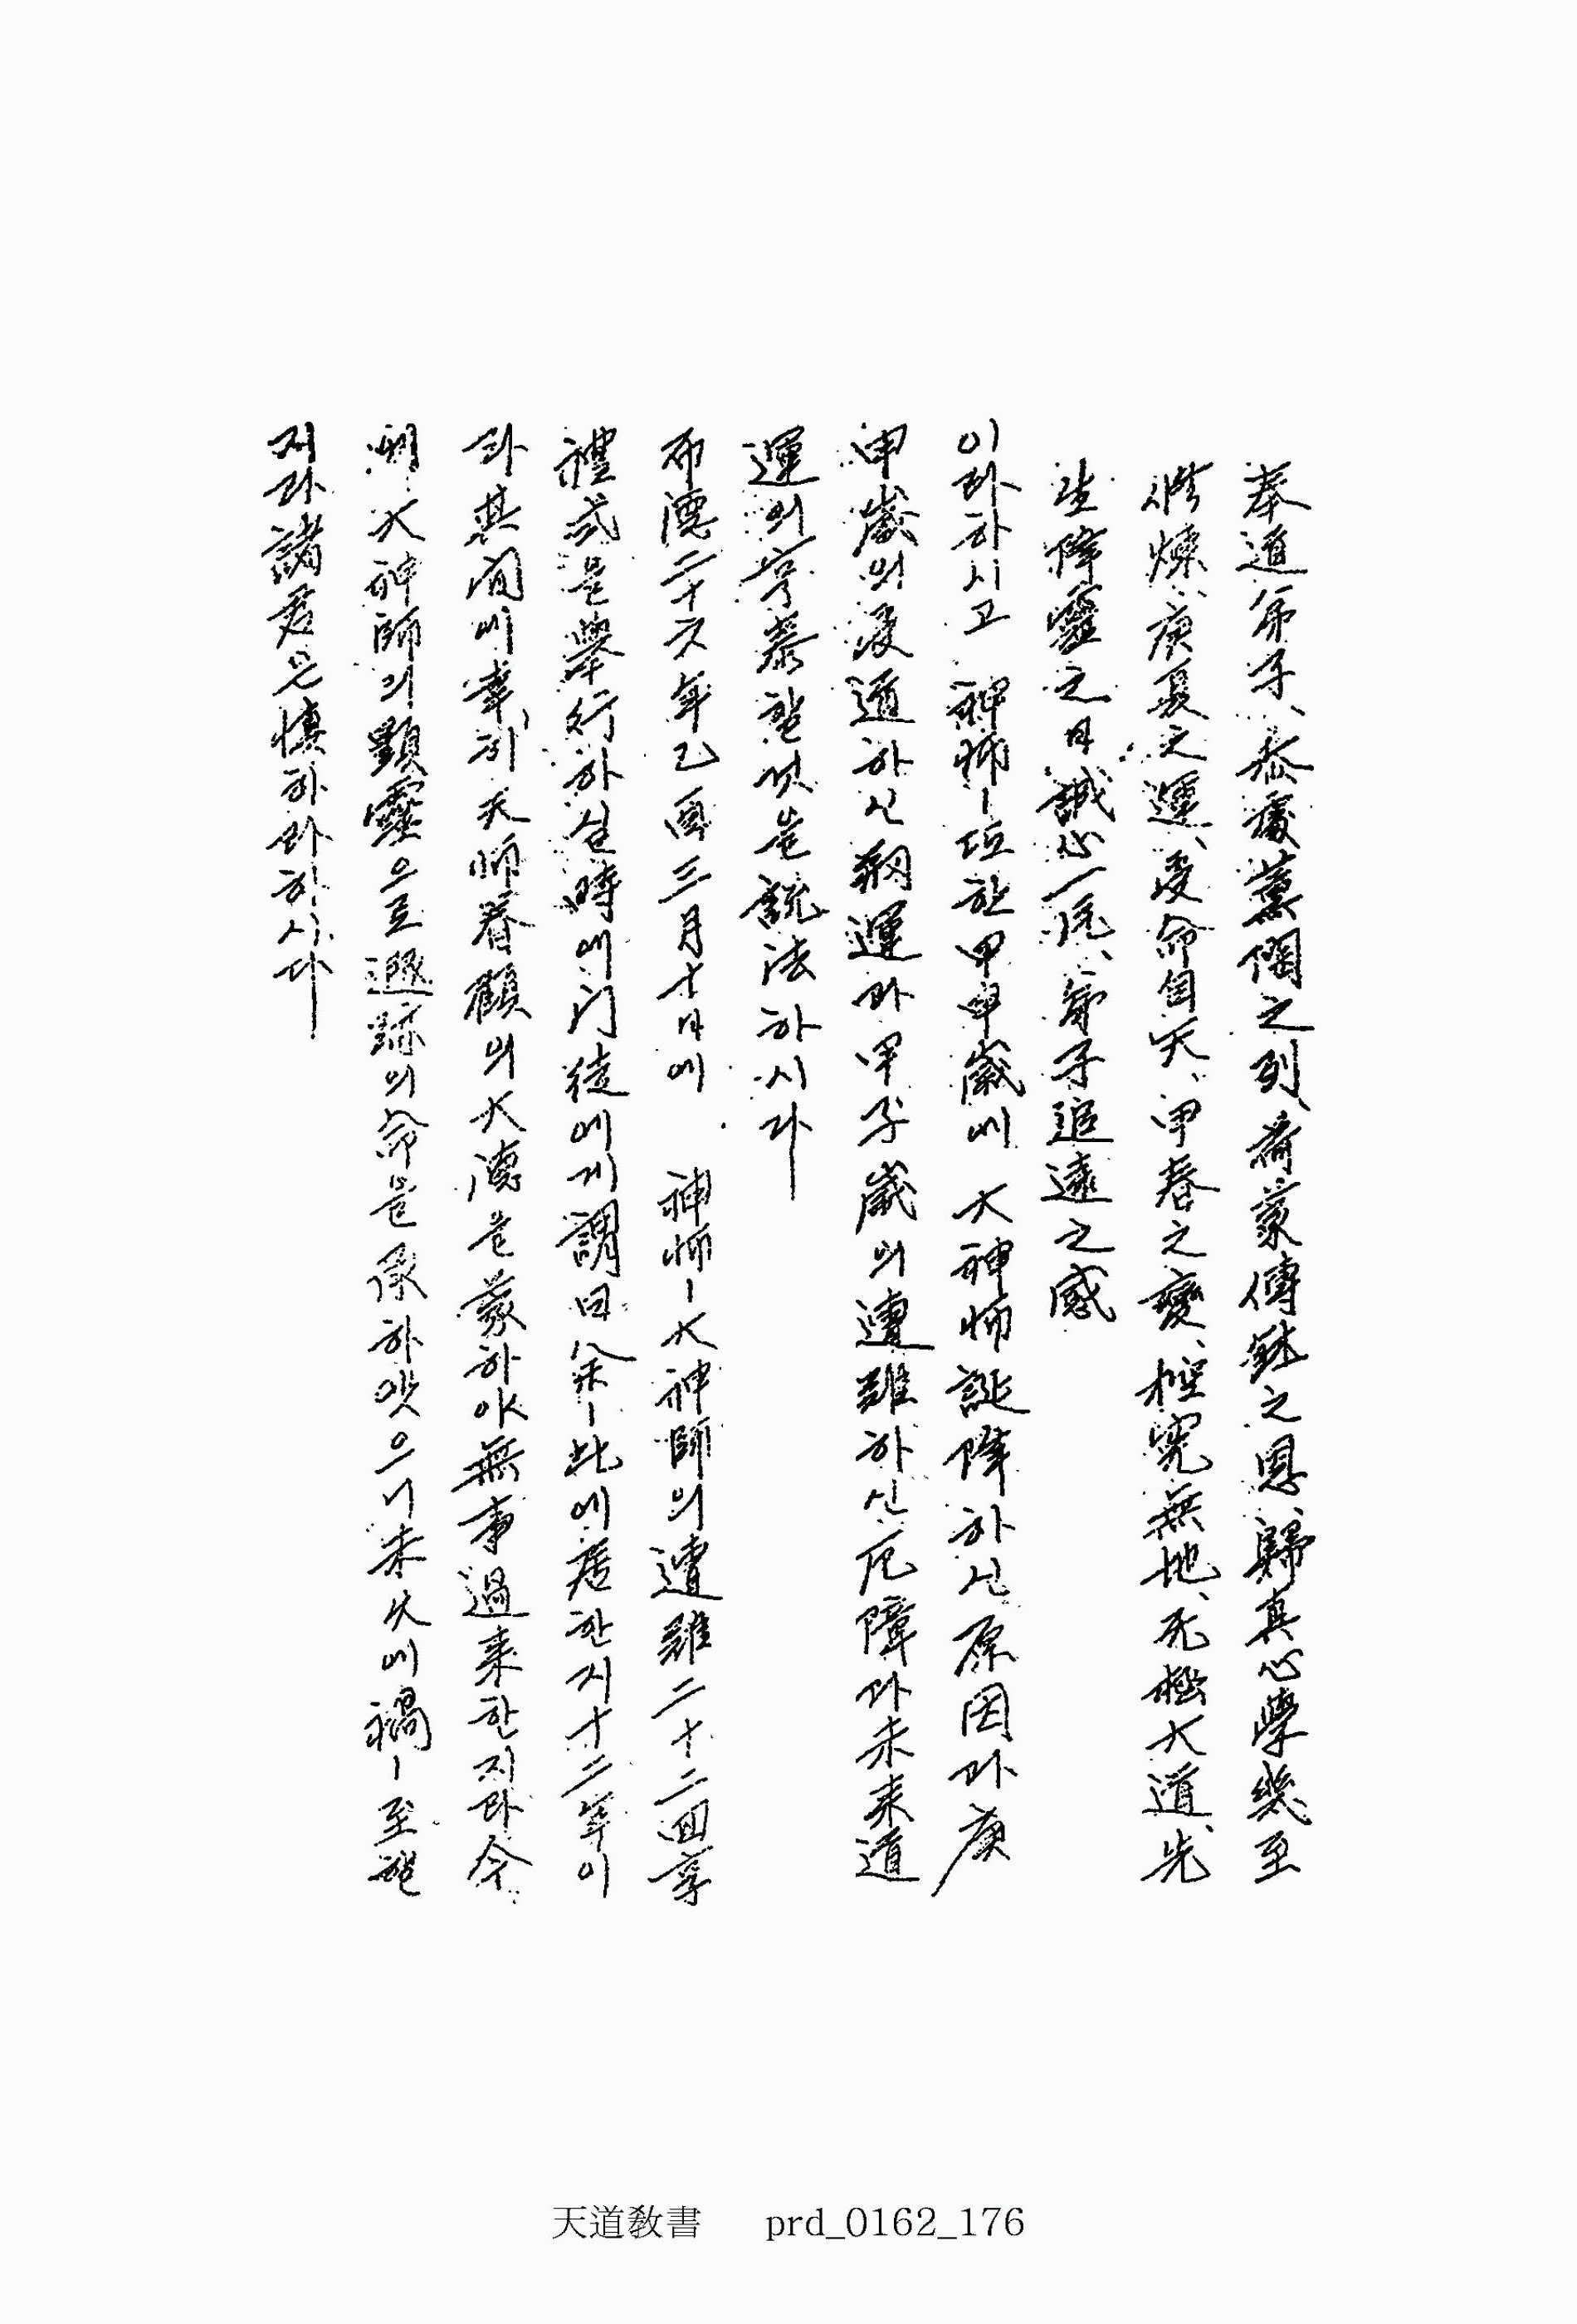 奉道弟子、忝處薰陶之列、荷蒙傳鉢之恩、歸眞心學、幾至
修煉、庚夏之運、受命自天、甲春之變、控寃無地、死極大道、先
生降靈之日、誠心一底、弟子追遠之感
이라하시고 神師ㅣ坯한甲申歲에 大神師誕降하신原因과庚
申歲의受道하신朔運과甲子歲의遭難하신厄障과未來道
運의亨泰할것을說法하시다ㅣ
布德二十六年乙酉三月十日에 神師ㅣ大神師의遭難二十二回享
禮式을擧行하실時에門徒에게謂曰余ㅣ此에居한지十二年이
라其間에幸히天師眷顧의大德을蒙하야無事過來한지라今
朔大神師의顯靈으로遯跡의命을承하얏으니未久에禍ㅣ至할
지라諸君은愼하라하시다ㅣ
天道敎書 prd_0162_176